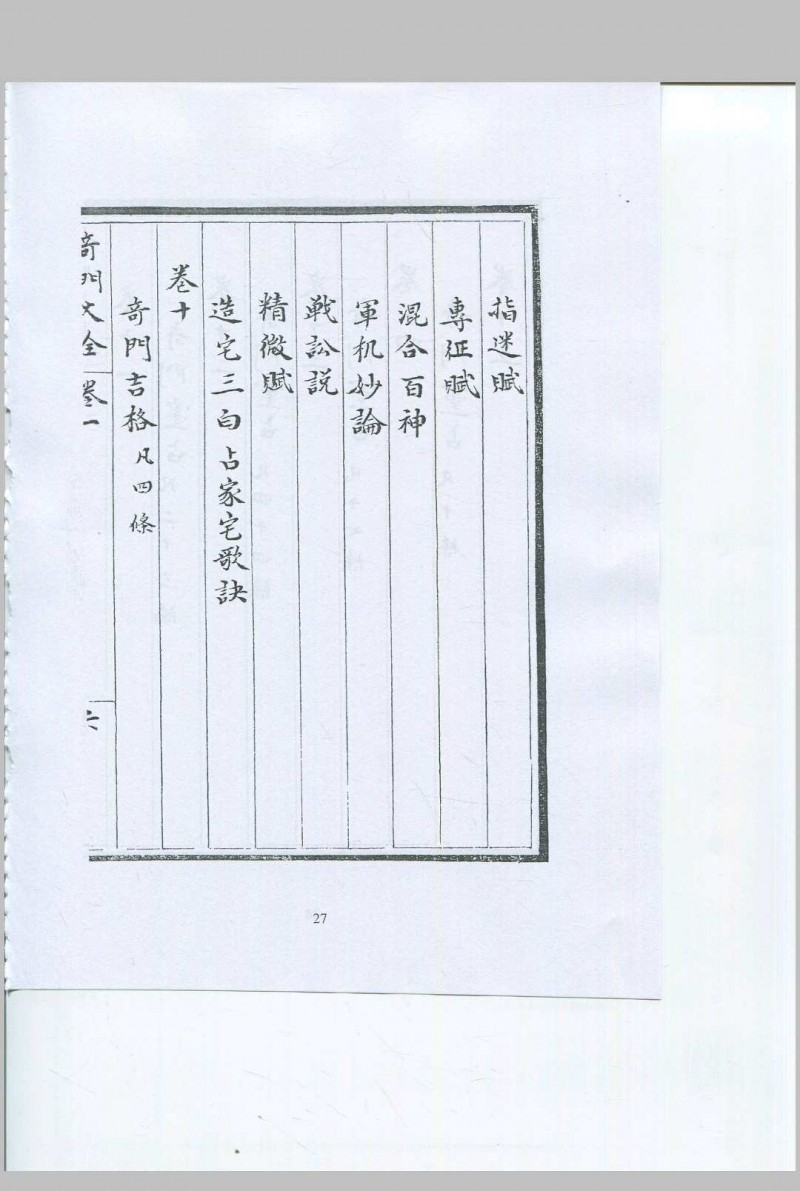 指迷賦
專征賦
混合百神
軍机妙論
戰訟説
精微賦
造宅三白占家宅歌訣
卷十
奇門吉格凡四條
奇門大全 卷一 六
27